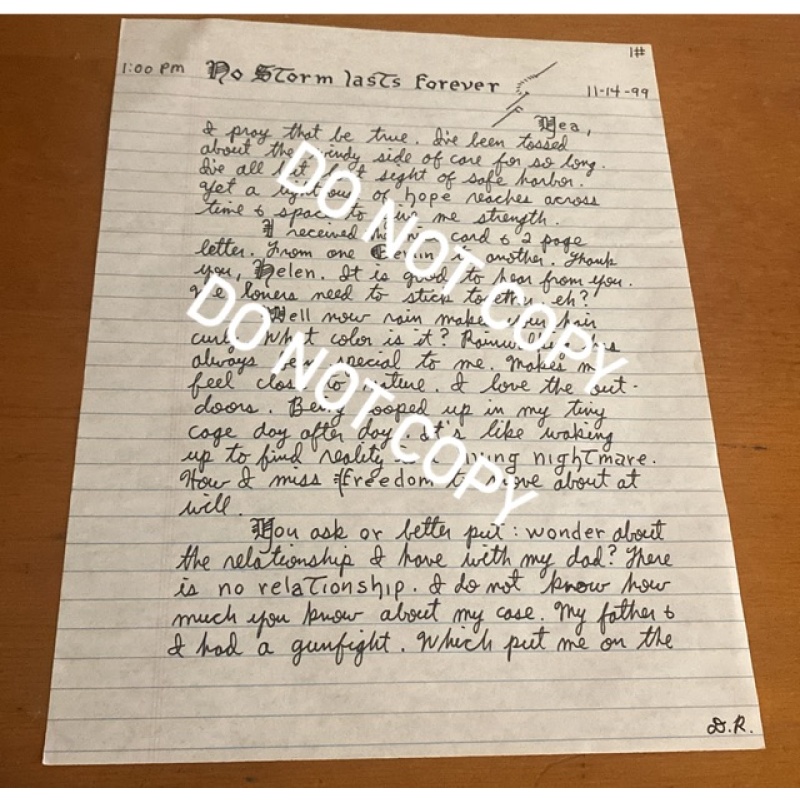 1#
1:00 pm No Storm lasts forever 11-14-99
Yea,
I pray that be true. I've been tossed
about the windy side of care for so long.
I've all but lost sight of safe harbor.
Yet a of hope reaches across
time & space to give me strength.
I received card & 2 page
letter. From one to another. Thank
you, Helen. It is good to hear from you.
We loners need to stick together, eh?
Well now rain makes your hair
curly. What color is it? has
always been special to me. Makes me
feel close to nature. I love the out-
doors. Being cooped up in my tiny
cage day after day. It's like waking
up to find reality is a living nightmare.
How I miss freedom to move about at
will.
You ask or better put: wonder about
the relationship I have with my dad? There
is no relationship. I do not know how
much you know about my case. My father &
I had a gunfight. Which put me on the
D.R.
DO NOT COPY
DO NOT COPY